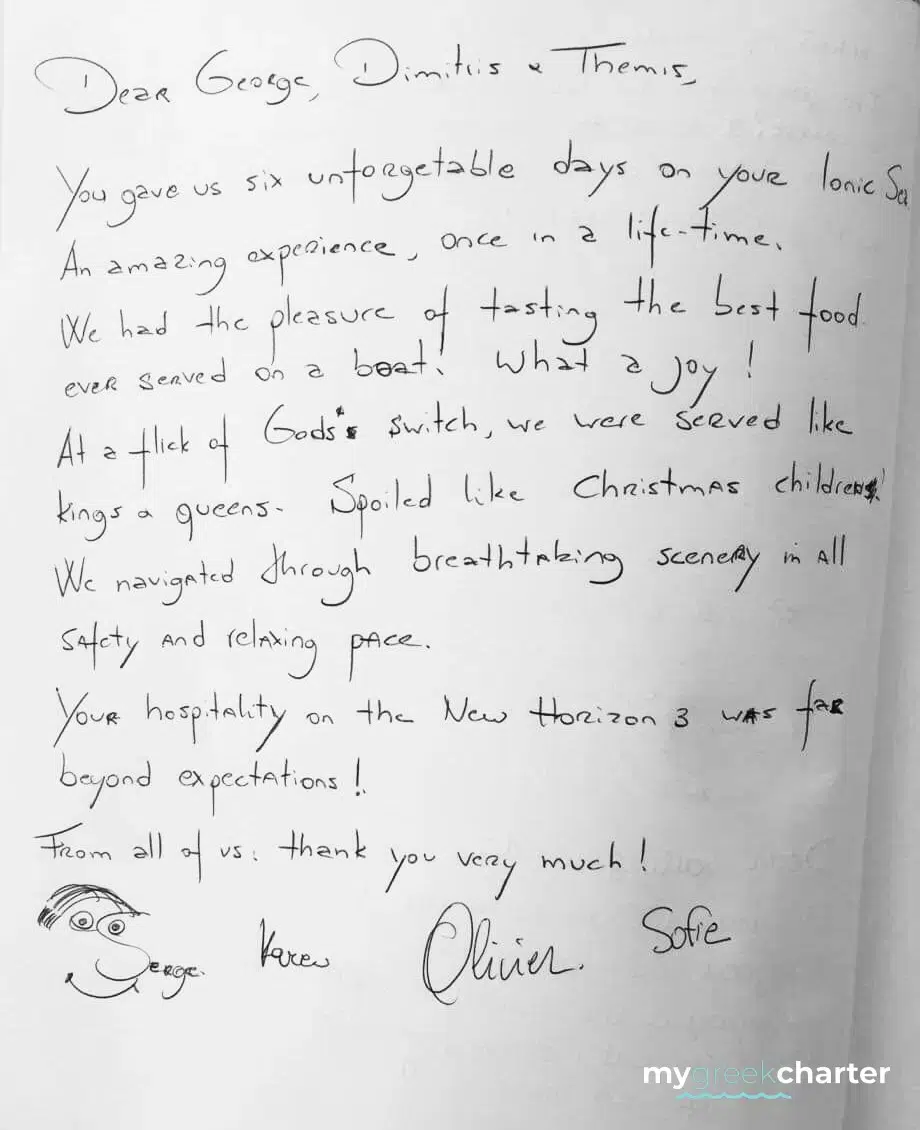 Dear George, Dimitris & Themis,
You gave us six unforgetable days on your Ionic Sea
An amazing experience, once in a life-time.
We had the pleasure of tasting the best food
ever served on a boat! What a joy!
At a flick of Gods' switch, we were served like
kings & queens. Spoiled like Christmas children!
We navigated through breathtaking scenery in all
safety and relaxing pace.
Your hospitality on the New Horizon 3 was far
beyond expectations!
From all of us: thank you very much!
Serge. Karen Olivier. Sofie
mygreekcharter